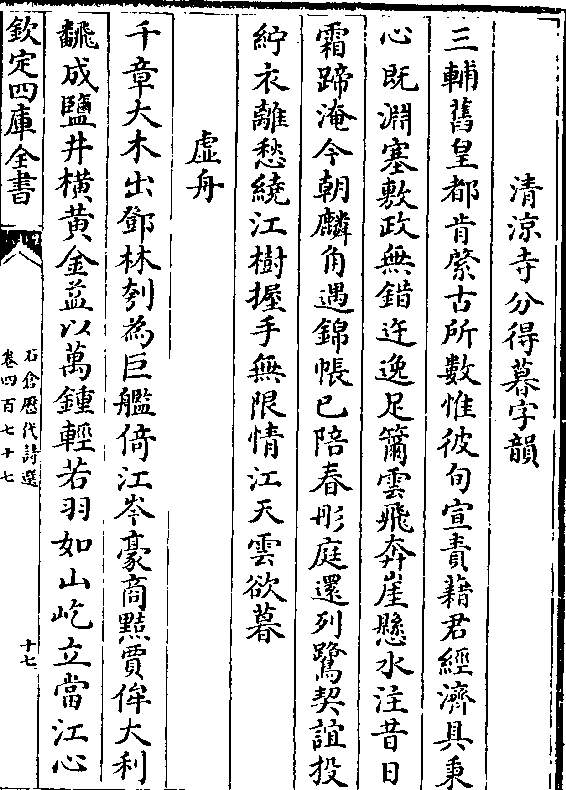 清涼寺分得暮字韻
三輔舊皇都肯綮古所數惟彼旬宣責藉君經濟具秉
心既淵塞敷政無錯迕逸足籋雲飛奔崖懸水注昔日
霜蹄淹今朝麟角遇錦帳已陪春彤庭還列鷺契誼投
紵衣離愁繞江樹握手無限情江天雲欲暮
虛舟
千章大木出鄧林刳為巨艦倚江岑豪商黠賈侔大利
飜成鹽井橫黄金益以萬鍾輕若羽如山屹立當江心
欽定四庫全書
石倉歷代詩選
卷四百七十七
十七